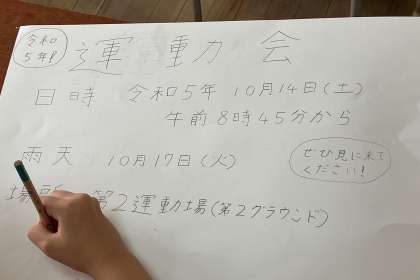 令和
5年!
運動会
日時 令和5年 10月14日(土)
午前8時45分から
雨天 10月17日(火)
ぜひ見に来て
ください!
場所 第2運動場(第2グラウンド)